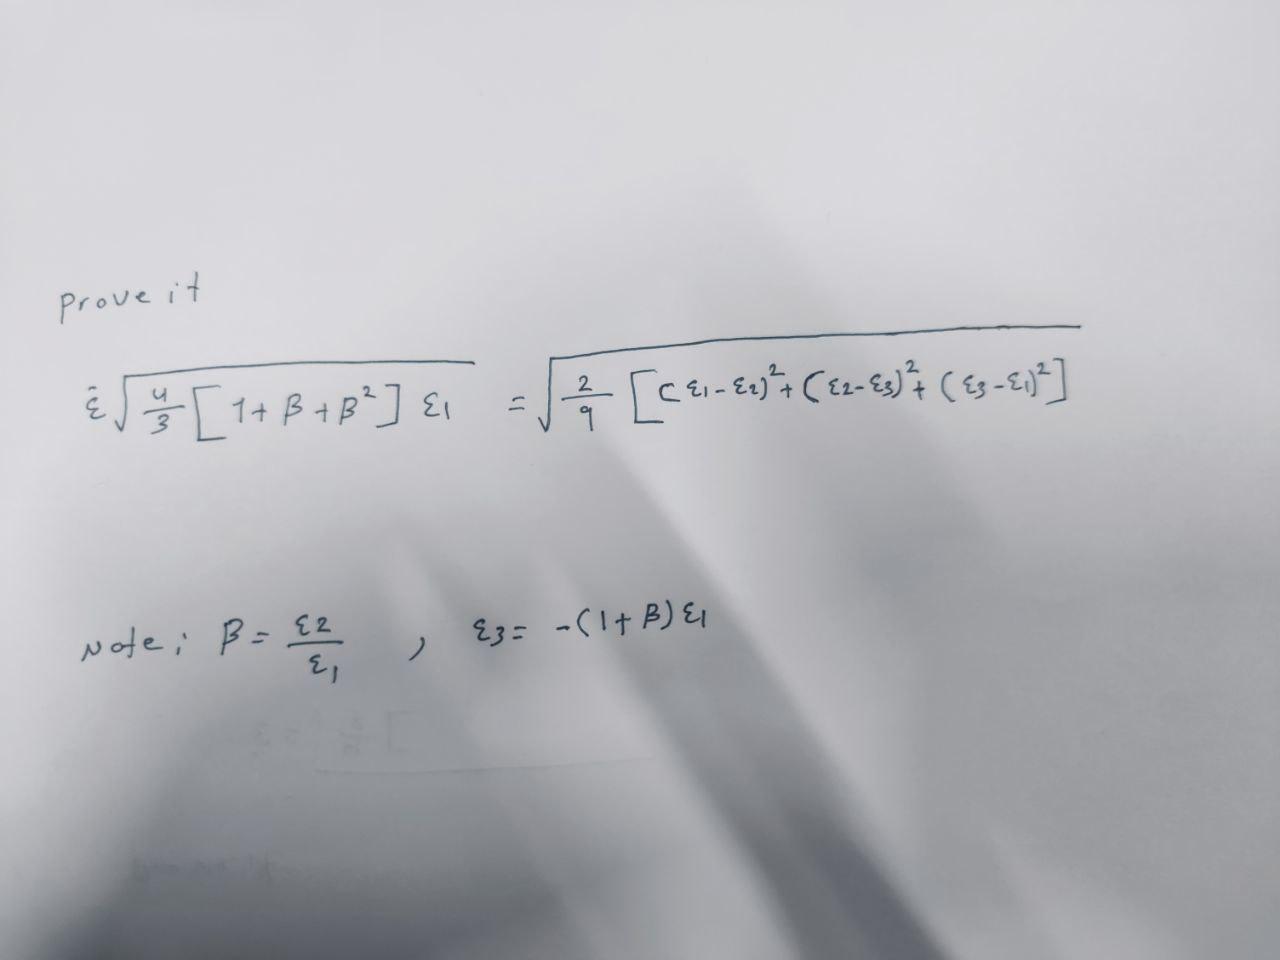 Prove it
ε̄ √(4/3 [1 + β + β²]) ε1 = √(2/9 [(ε1 - ε2)² + (ε2 - ε3)² + (ε3 - ε1)²])
Note; β = ε2/ε1 , ε3 = -(1 + β) ε1